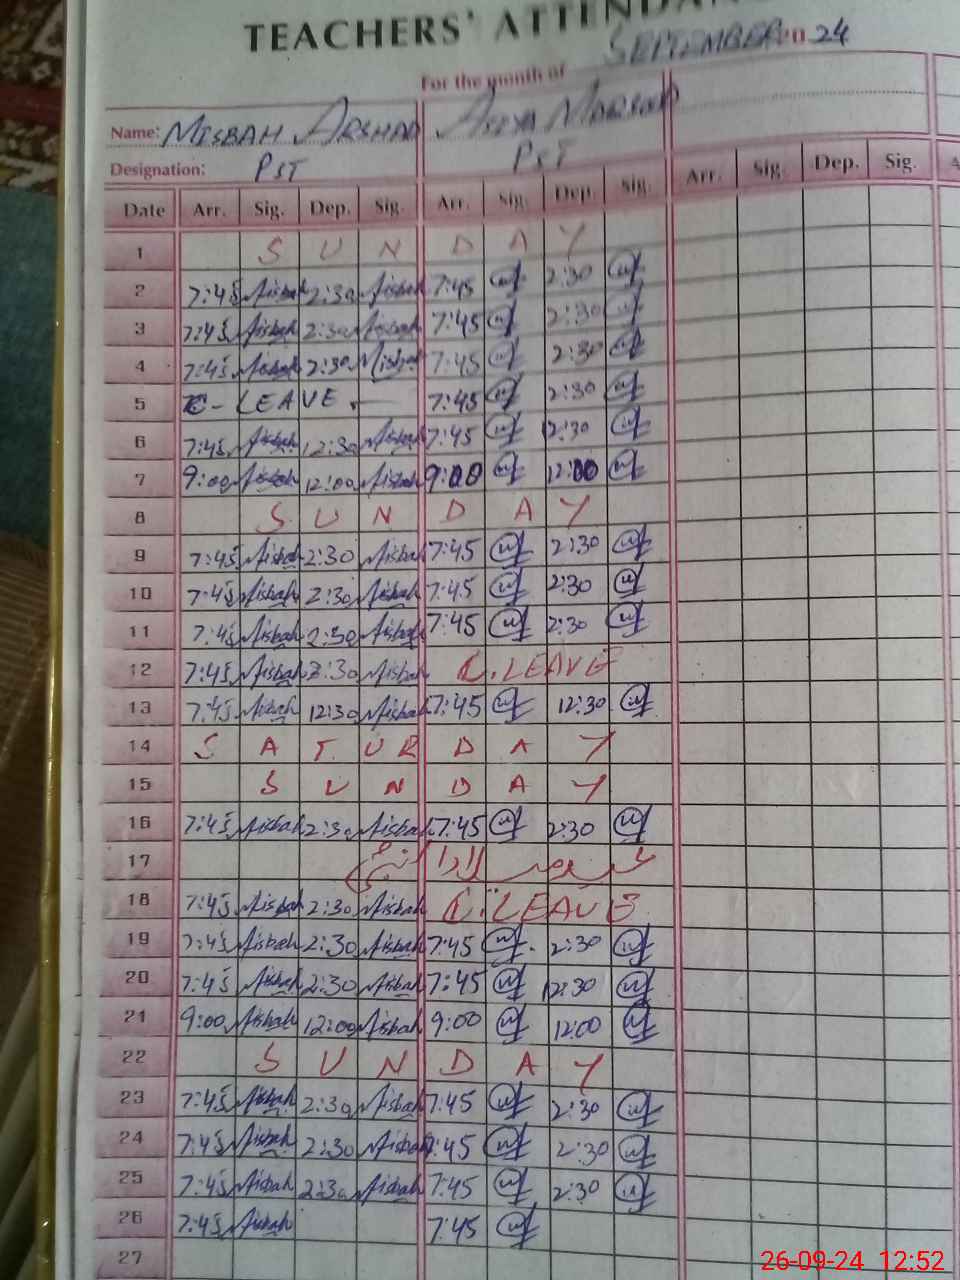 TEACHERS' ATTENDAN
For the month of SEPTEMBER 20 24
Name: MISBAH ARSHAD
Designation: PST PST
Date Arr. Sig. Dep. Sig. Arr. Sig. Dep. Sig. Arr. Sig. Dep. Sig. A
1 SUNDAY
2 7:45 Misbah 2:30 Misbah 7:45 2:30
3 7:45 Misbah 2:30 Misbah 7:45 2:30
4 7:45 Misbah 2:30 Misbah 7:45 2:30
5 C-LEAVE. 7:45 2:30
6 7:45 Misbah 12:30 Misbah 7:45 12:30
7 9:00 Misbah 12:00 Misbah 9:00 12:00
8 SUNDAY
9 7:45 Misbah 2:30 Misbah 7:45 2:30
10 7:45 Misbah 2:30 Misbah 7:45 2:30
11 7:45 Misbah 2:30 Misbah 7:45 2:30
12 7:45 Misbah 2:30 Misbah C.LEAVE
13 7:45 Misbah 12:30 Misbah 7:45 12:30
14 SATURDAY
15 SUNDAY
16 7:45 Misbah 2:30 Misbah 7:45 2:30
17
18 7:45 Misbah 2:30 Misbah C.LEAVE
19 7:45 Misbah 2:30 Misbah 7:45 2:30
20 7:45 Misbah 2:30 Misbah 7:45 12:30
21 9:00 Misbah 12:00 Misbah 9:00 12:00
22 SUNDAY
23 7:45 Misbah 2:30 Misbah 7:45 2:30
24 7:45 Misbah 2:30 Misbah 7:45 2:30
25 7:45 Misbah 2:30 Misbah 7:45 2:30
26 7:45 Misbah 7:45
27
26-09-24 12:52